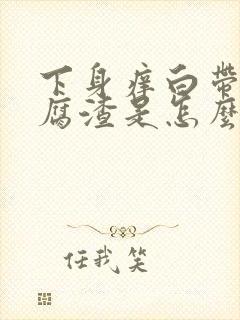 下身痒白带
腐渣是怎麼
任我笑